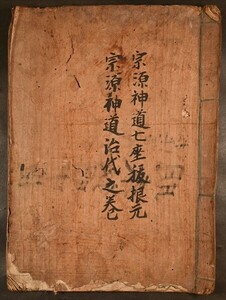 宗源神道七座祓根元
宗源神道治代之巻